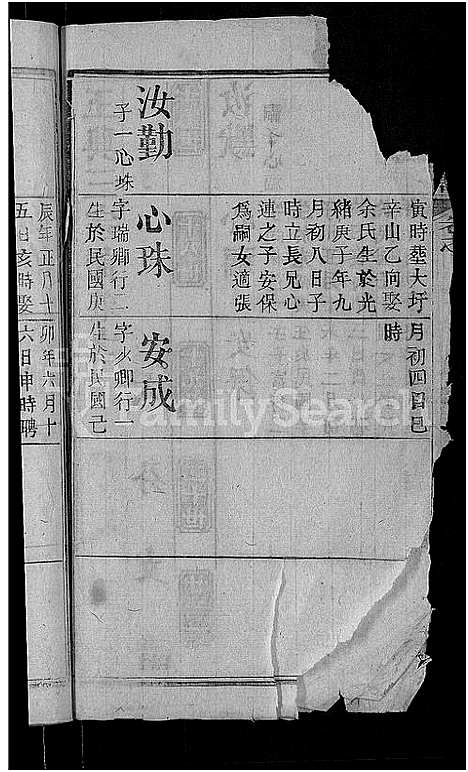 寅時葬大圩
辛山乙向娶
余氏生於光
緒庚子年九
月初八日子
時立長兄心
連之子安保
為嗣女適張
月初四日巳
時
汝勤
子一心珠
心珠
字瑞卿行二
生於民國庚
安成
字火卿行一
生於民國己
辰年正月十
五日亥時娶
卯年六月十
六日申時聘
FamilySearch